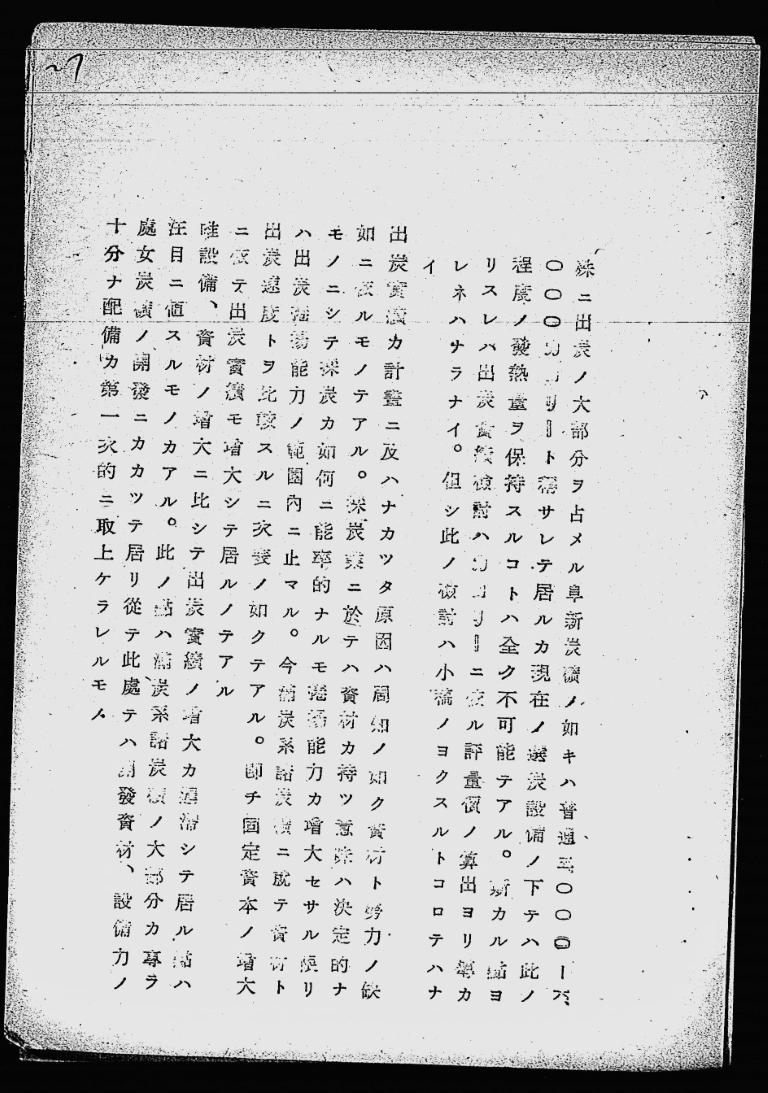 殊ニ出炭ノ大部分ヲ占メル阜新炭礦ノ如キハ普通五〇〇〇ー六、
〇〇〇カロリート稱サレテ居ルカ現在ノ選炭設備ノ下テハ此ノ
程度ノ發熱量ヲ保持スルコトハ全ク不可能テアル。斯カル點ヨ
リスレハ出炭實績檢討ハカロリーニ依ル評量價ノ算出ヨリ學カ
レネハサラナイ。但シ此ノ檢討ハ小稿ノヨクスルトコロテハナ
イ
出炭實績カ計畫ニ及ハナカツタ原因ハ周知ノ如ク資材ト勞力ノ缺
如ニ依ルモノテアル。採炭業ニ於テハ資材カ持ツ意味ハ決定的ナ
モノニシテ採炭カ如何ニ能率的ナルモ捲揚能力カ增大セサル限リ
ハ出炭捲揚能力ノ範圍內ニ止マル。今滿炭系諸炭礦ニ就テ資材ト
出炭速度トヲ比較スルニ次表ノ如クテアル。卽チ固定資本ノ增大
ニ依テ出炭實績モ增大シテ居ルノテアル
唯設備、資材ノ增大ニ比シテ出炭實績ノ增大カ遲滯シテ居ル點ハ
注目ニ値スルモノカアル。此ノ點ハ滿炭系諸炭礦ノ大部分カ專ラ
處女炭礦ノ開發ニカカツテ居リ從テ此處テハ開發資材、設備力ノ
十分ナ配備カ第一次的ニ取上ケラレルモノ